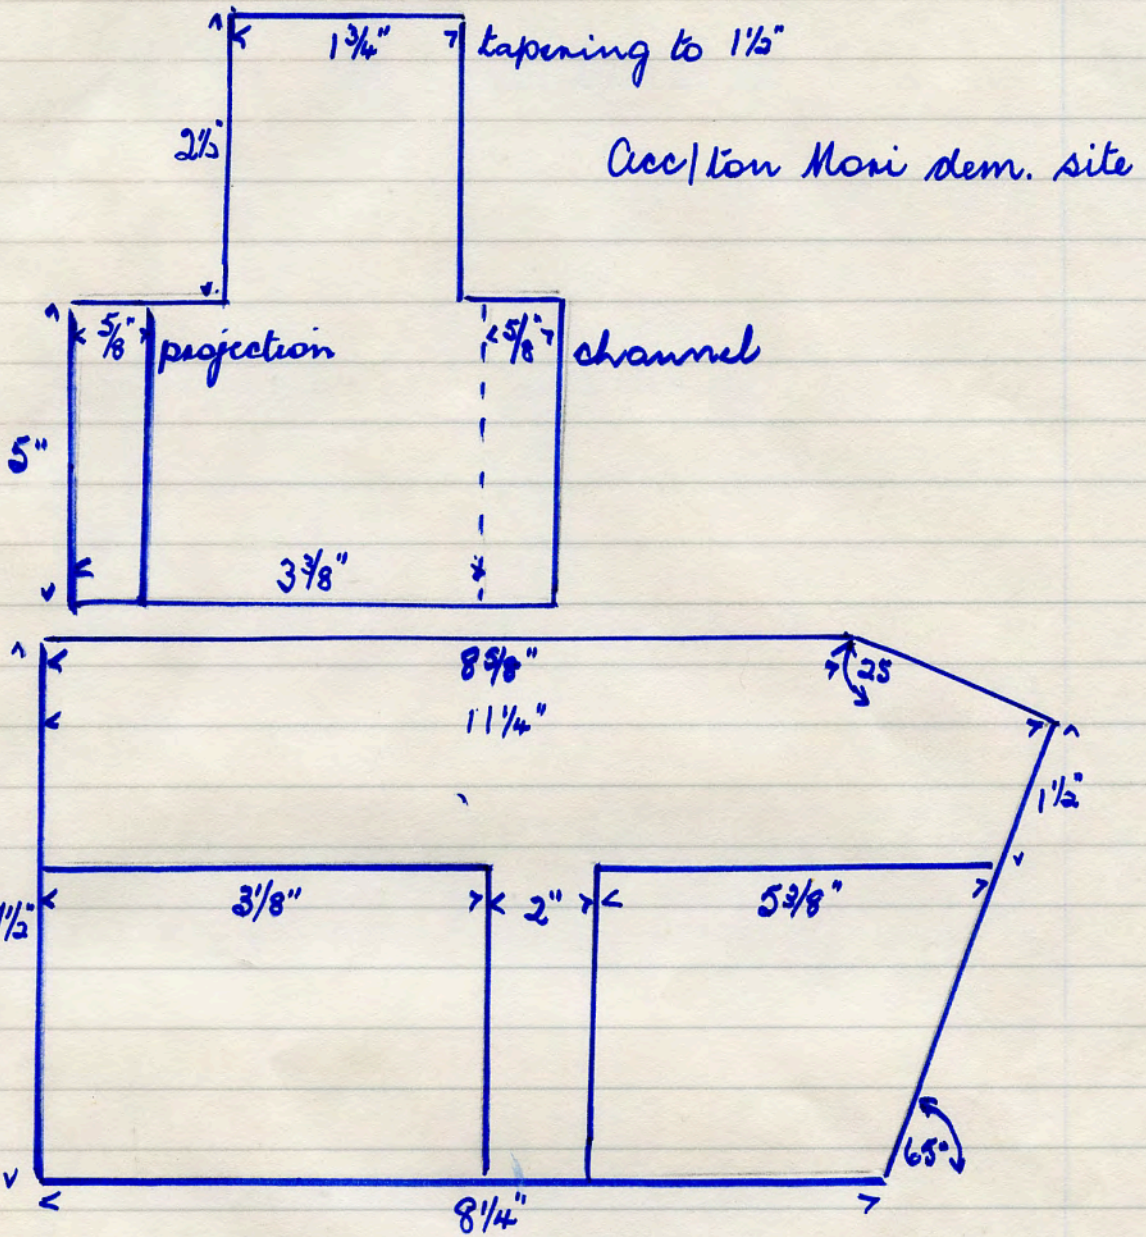 1¾" tapering to 1½"
2½"
Acc/ton Mori dem. site
5/8" projection
5/8" channel
5"
3 3/8"
8 5/8"
25
11¼"
1½"
3 1/8"
2"
5 3/8"
65°
8¼"